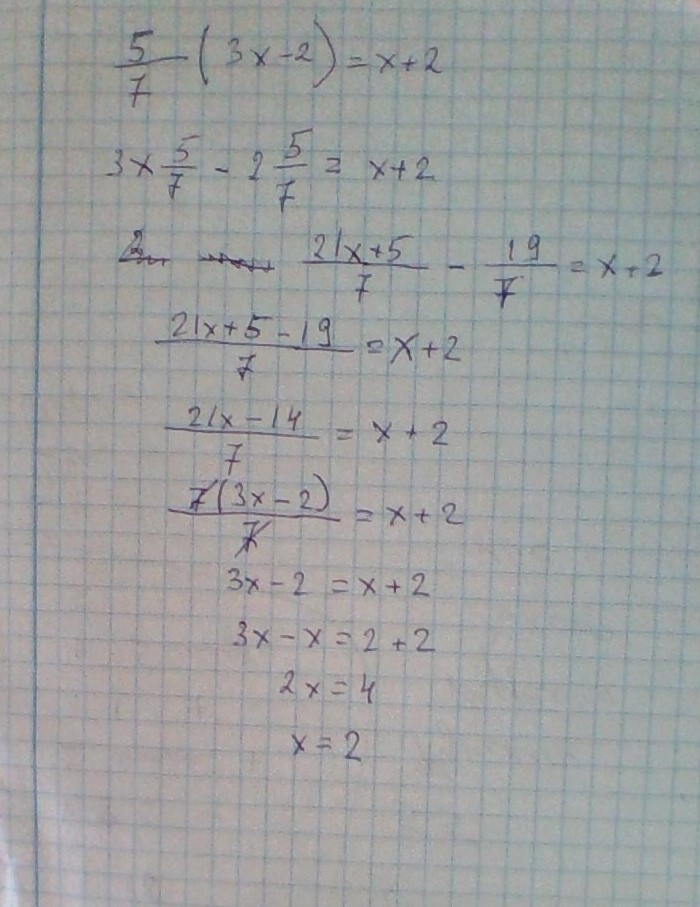 5/7 (3x-2) = x+2
3x 5/7 - 2 5/7 = x+2
2 (21x+5)/7 - 19/7 = x+2
(21x+5-19)/7 = x+2
(21x-14)/7 = x+2
7(3x-2)/7 = x+2
3x-2 = x+2
3x-x = 2+2
2x = 4
x = 2